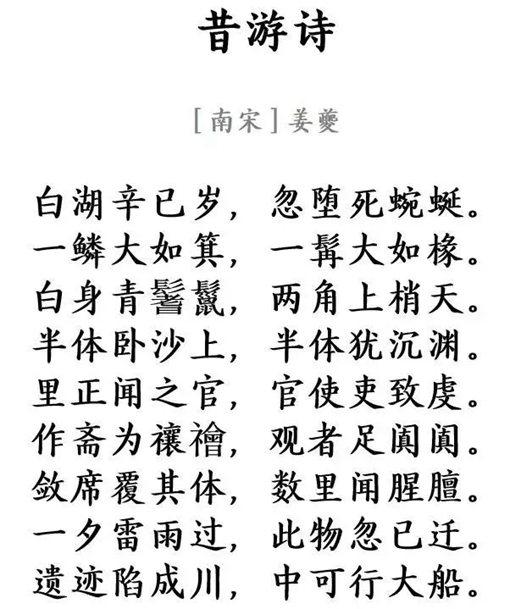 昔游诗
[南宋]姜夔
白湖辛已岁，忽堕死蜿蜒。
一鳞大如箕，一髯大如椽。
白身青髻鬣，两角上梢天。
半体卧沙上，半体犹沉渊。
里正闻之官，官使吏致虔。
作斋为禳禬，观者足阗阗。
敛席覆其体，数里闻腥膻。
一夕雷雨过，此物忽已迁。
遗迹陷成川，中可行大船。